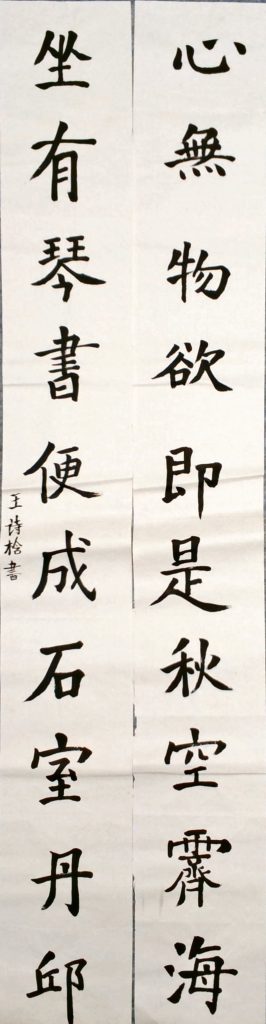 心無物欲即是秋空霽海
坐有琴書便成石室丹邱
王诗桧書